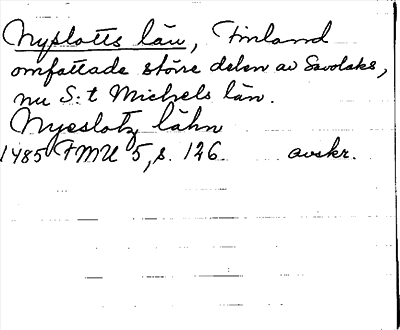 Nyslotts län, Finland
omfattade större delen av Savolaks,
nu S:t Michels län.
Nyeslotz lähn
1485 FMU 5, s. 126. avskr.